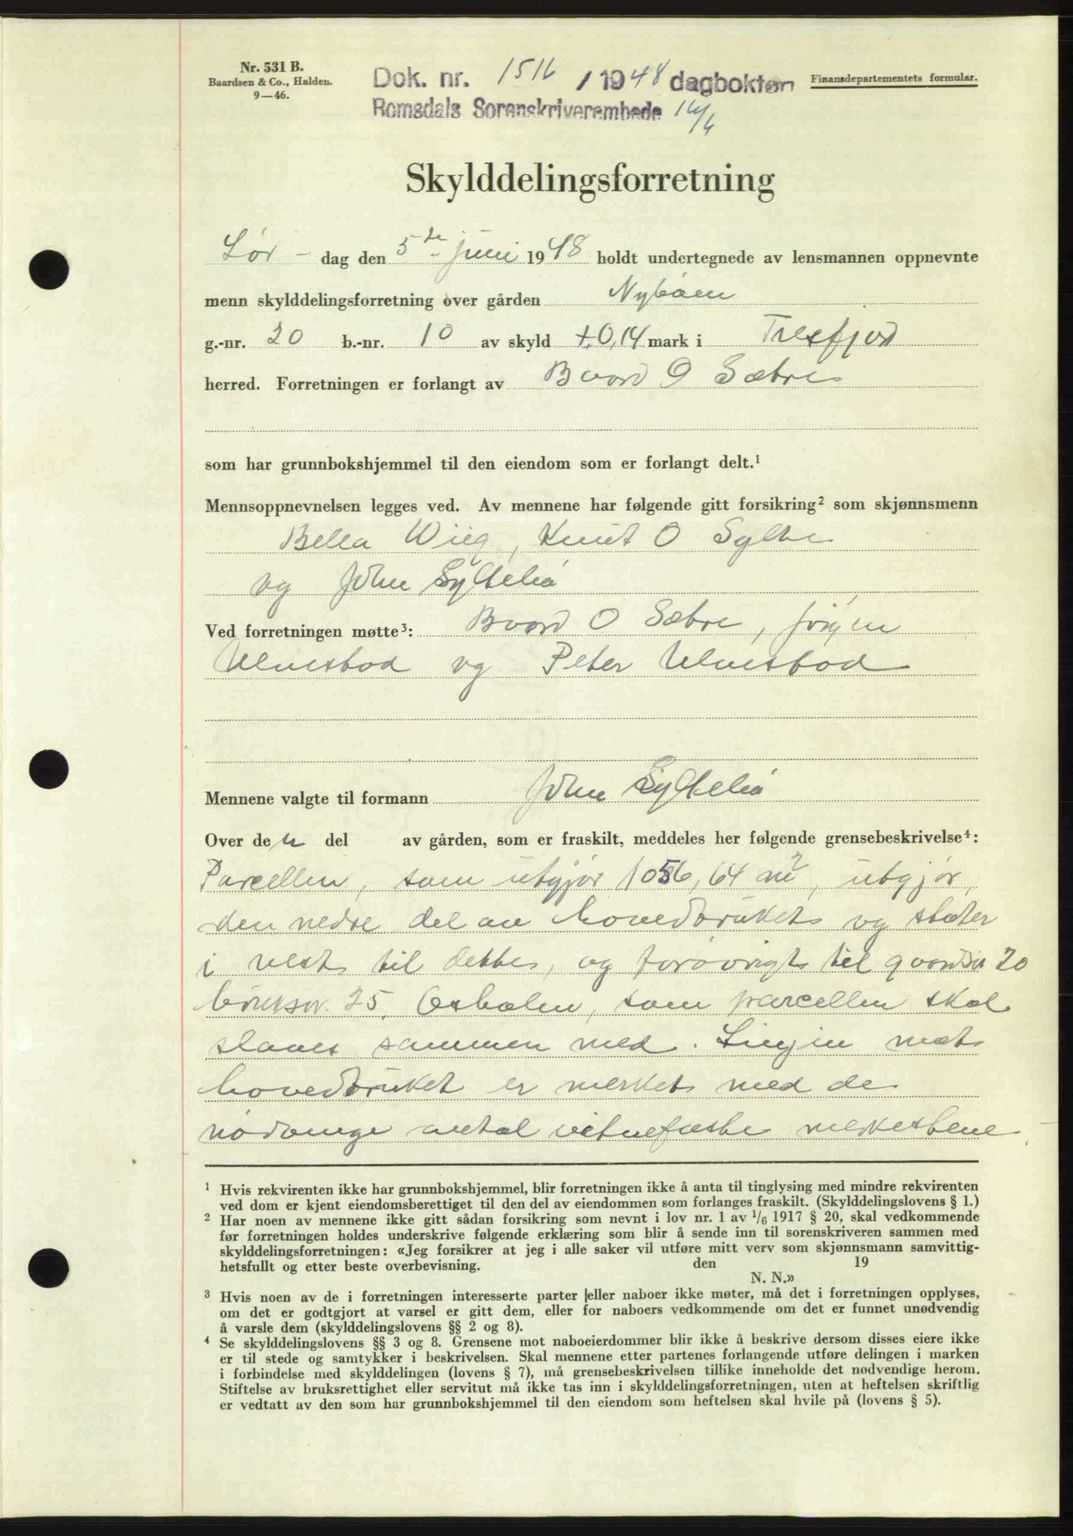 Nr. 531 B.
Baardsen & Co., Halden.
9—46.
Dok. nr. 1516 / 1948 dagboktøn
Romsdals Sorenskriverembede 16/6
Finansdepartementets formular.
Skylddelingsforretning
Lør - dag den 5te juni 1948 holdt undertegnede av lensmannen oppnevnte
menn skylddelingsforretning over gården Nybøen
g.-nr. 20 b.-nr. 10 av skyld 0,14 mark i Tresfjord
herred. Forretningen er forlangt av Bvord O Sæbre
som har grunnbokshjemmel til den eiendom som er forlangt delt.¹
Mennsoppnevnelsen legges ved. Av mennene har følgende gitt forsikring² som skjønnsmenn
Bella Wiig, Knut O Sylte
og John Sylteliå
Ved forretningen møtte³: Bvord O Sæbre, Jørgen
Ulvestad og Peter Ulvestad
Mennene valgte til formann John Sylteliå
Over den del av gården, som er fraskilt, meddeles her følgende grensebeskrivelse⁴:
Parcellen, som utgjør 1056,64 m², utgjør
den nedre del av hovedbruket og støter
i vest til dette, og forøvrigt til gordsnr 20
bruksnr. 25, Osholen, som parcellen skal
slaaes sammen med. Linjen mot
hovedbruket er merket med de
nødvendige antal vitnefaste merkestene
¹ Hvis rekvirenten ikke har grunnbokshjemmel, blir forretningen ikke å anta til tinglysing med mindre rekvirenten
ved dom er kjent eiendomsberettiget til den del av eiendommen som forlanges fraskilt. (Skylddelingslovens § 1.)
² Har noen av mennene ikke gitt sådan forsikring som nevnt i lov nr. 1 av 1/6 1917 § 20, skal vedkommende
før forretningen holdes underskrive følgende erklæring som blir å sende inn til sorenskriveren sammen med
skylddelingsforretningen: «Jeg forsikrer at jeg i alle saker vil utføre mitt verv som skjønnsmann samvittig-
hetsfullt og etter beste overbevisning. den 19
N. N.»
³ Hvis noen av de i forretningen interesserte parter eller naboer ikke møter, må det i forretningen opplyses,
om det er godtgjort at varsel er gitt dem, eller for naboers vedkommende om det er funnet unødvendig
å varsle dem (skylddelingslovens §§ 2 og 8).
⁴ Se skylddelingslovens §§ 3 og 8. Grensene mot naboeierdommer blir ikke å beskrive dersom disses eiere ikke
er til stede og samtykker i beskrivelsen. Skal mennene etter partenes forlangende utføre delingen i marken
i forbindelse med skylddelingen (lovens § 7), må grensebeskrivelsen tillike inneholde det nødvendige herom.
Stiftelse av bruksrettighet eller servitut må ikke tas inn i skylddelingsforretningen, uten at heftelsen skriftlig
er vedtatt av den som har grunnbokshjemmel til den eiendom som heftelsen skal hvile på (lovens § 5).